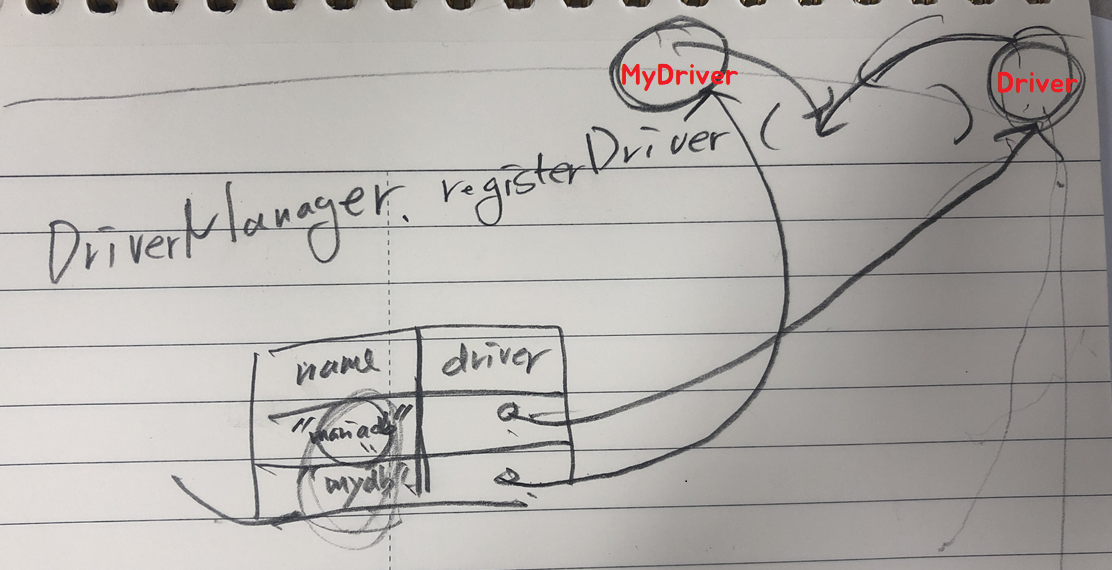 MyDriver Driver
DriverManager. registerDriver ( )
name driver
"mariadb"
"mydb"